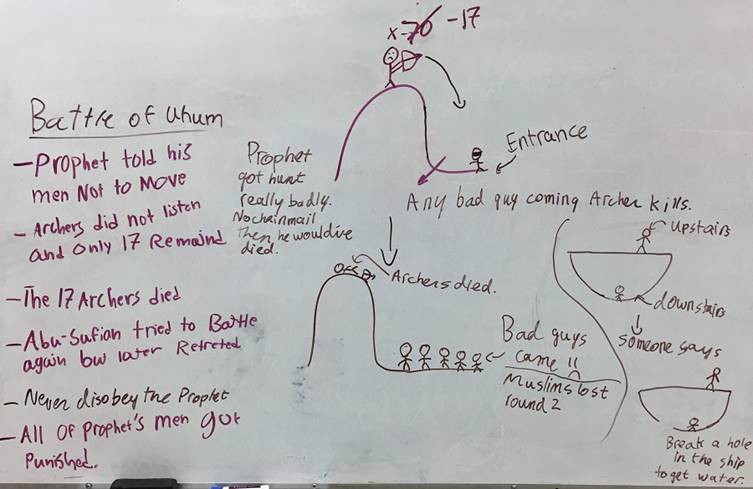 Battle of Uhum
- Prophet told his
men Not to Move
- Archers did not listen
and only 17 Remaind
- The 17 Archers died
- Abu-Sufian tried to Battle
again bw later Retreted
- Never disobey the Prophet
- All of Prophet's men got
punished.
x-70 -17
Entrance
Any bad guy coming Archer kills.
Prophet
got hurt
really badly.
No chainmail
then he would've
died.
Archers died.
Bad guys
came !!
Muslims lost
round 2
upstairs
downstairs
someone says
Break a hole
in the ship
to get water.